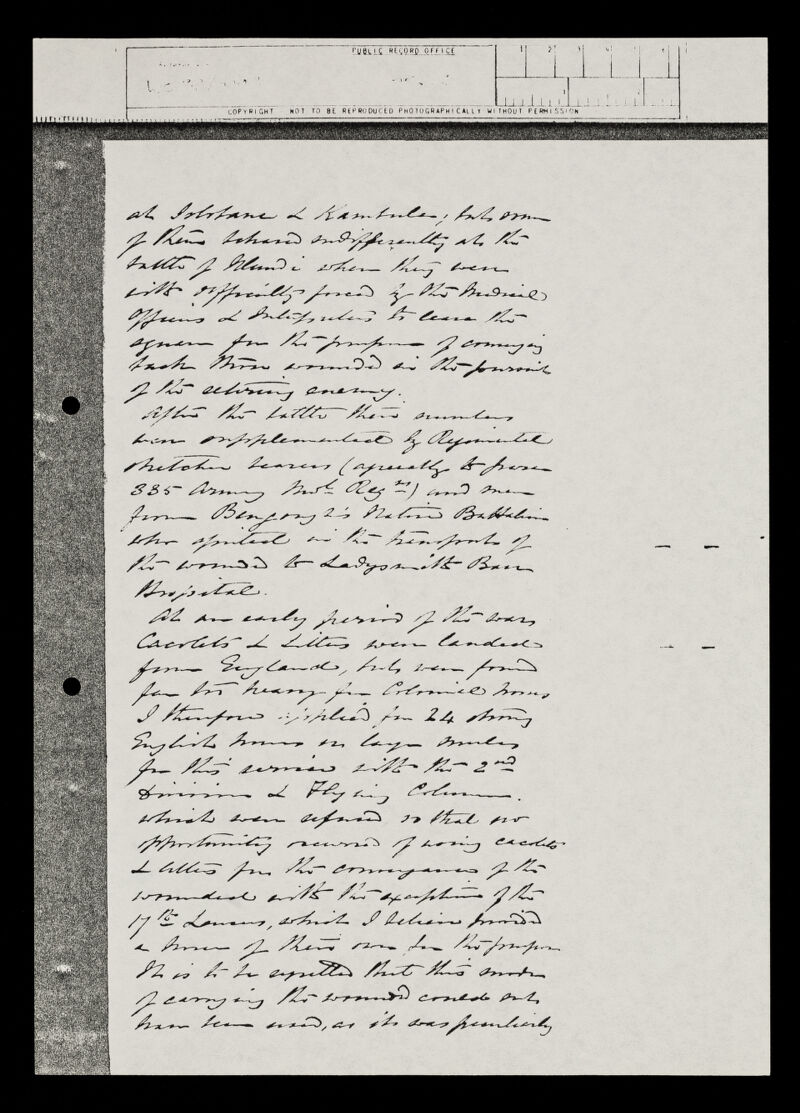 PUBLIC RECORD OFFICE
1 2 3 4 5 6
1 2
COPYRIGHT NOT TO BE REPRODUCED PHOTOGRAPHICALLY WITHOUT PERMISSION
at & Kambula; but some
of them behaved indifferently at the
battle of Ulundi when they were
with difficulty forced by the Medical
Officers & Interpreters to leave the
square for the purpose of conveying
back those wounded in the pursuit
of the retiring enemy.
After the battle their numbers
were supplemented by Regimental
stretcher bearers (agreeably to
335 Army Regns) and men
from Native Battalion
who assisted in the transport of
the wounded to Ladysmith Base
Hospital.
At an early period of the war
Cacolets & Litters were landed
from England, but were found
far too heavy for Colonial horses
I therefore applied for 24 strong
English horses or large mules
for this service with the 2nd
Division & Flying Column.
which were refused so that no
opportunity occurred of using cacolets
& litters for the conveyance of the
wounded with the exception of the
17th Lancers, which I believe provided
a horse of their own for the purpose
It is to be regretted that this mode
of carrying the wounded could not
have been used, as it was peculiarly